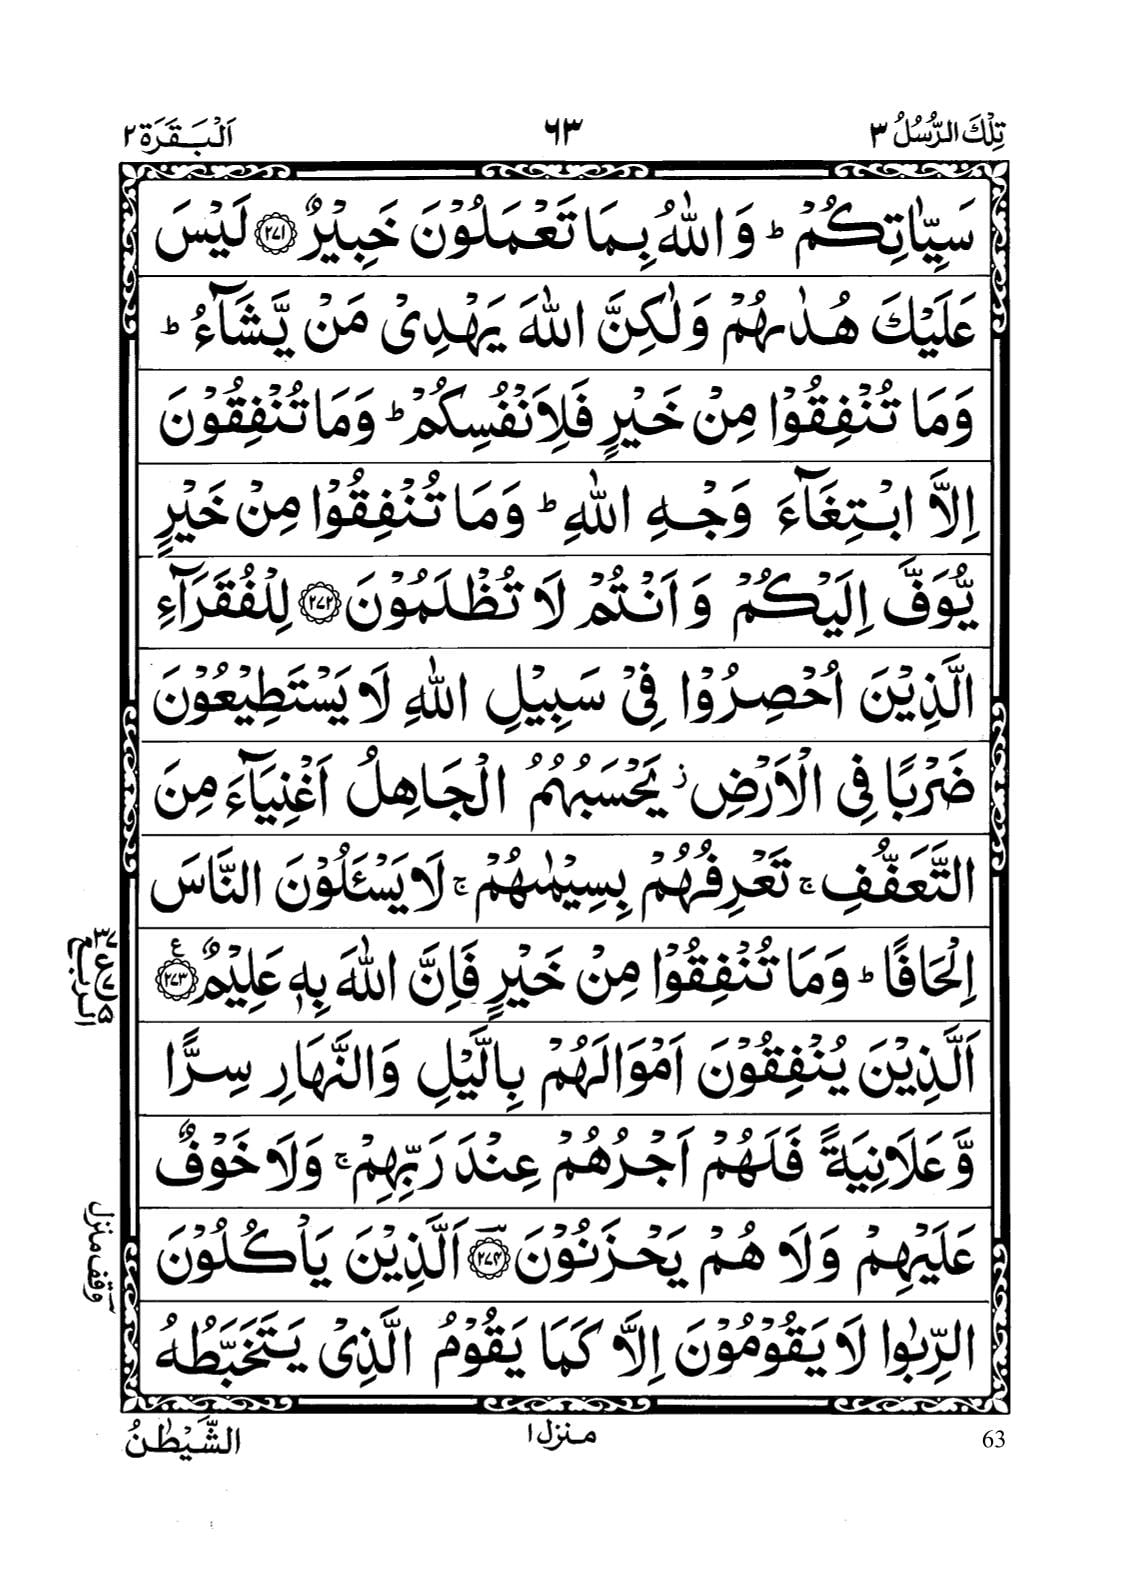 تِلْكَ الرُّسُلُ ٣
٦٣
اَلْبَقَرَة ٢
سَيِّاٰتِكُمْ ؕ وَاللّٰهُ بِمَا تَعْمَلُوْنَ خَبِيْرٌ ﴿۲۷۱﴾ لَيْسَ
عَلَيْكَ هُدٰىهُمْ وَلٰكِنَّ اللّٰهَ يَهْدِىْ مَنْ يَّشَآءُ ؕ
وَمَا تُنْفِقُوْا مِنْ خَيْرٍ فَلِاَنْفُسِكُمْ ؕ وَمَا تُنْفِقُوْنَ
اِلَّا ابْتِغَآءَ وَجْهِ اللّٰهِ ؕ وَمَا تُنْفِقُوْا مِنْ خَيْرٍ
يُّوَفَّ اِلَيْكُمْ وَاَنْتُمْ لَا تُظْلَمُوْنَ ﴿۲۷۲﴾ لِلْفُقَرَآءِ
الَّذِيْنَ اُحْصِرُوْا فِىْ سَبِيْلِ اللّٰهِ لَا يَسْتَطِيْعُوْنَ
ضَرْبًا فِى الْاَرْضِ ز يَحْسَبُهُمُ الْجَاهِلُ اَغْنِيَآءَ مِنَ
التَّعَفُّفِ ۚ تَعْرِفُهُمْ بِسِيْمٰىهُمْ ۚ لَا يَسْئَلُوْنَ النَّاسَ
اِلْحَافًا ؕ وَمَا تُنْفِقُوْا مِنْ خَيْرٍ فَاِنَّ اللّٰهَ بِهٖ عَلِيْمٌ ﴿۲۷۳﴾ ع
اَلَّذِيْنَ يُنْفِقُوْنَ اَمْوَالَهُمْ بِالَّيْلِ وَالنَّهَارِ سِرًّا
وَّعَلَانِيَةً فَلَهُمْ اَجْرُهُمْ عِنْدَ رَبِّهِمْ ۚ وَلَا خَوْفٌ
عَلَيْهِمْ وَلَا هُمْ يَحْزَنُوْنَ ﴿۲۷۴﴾ اَلَّذِيْنَ يَاْكُلُوْنَ
الرِّبٰوا لَا يَقُوْمُوْنَ اِلَّا كَمَا يَقُوْمُ الَّذِىْ يَتَخَبَّطُهُ
الربع
وقف منزل
الشَّيْطٰنُ
منزل ١
63